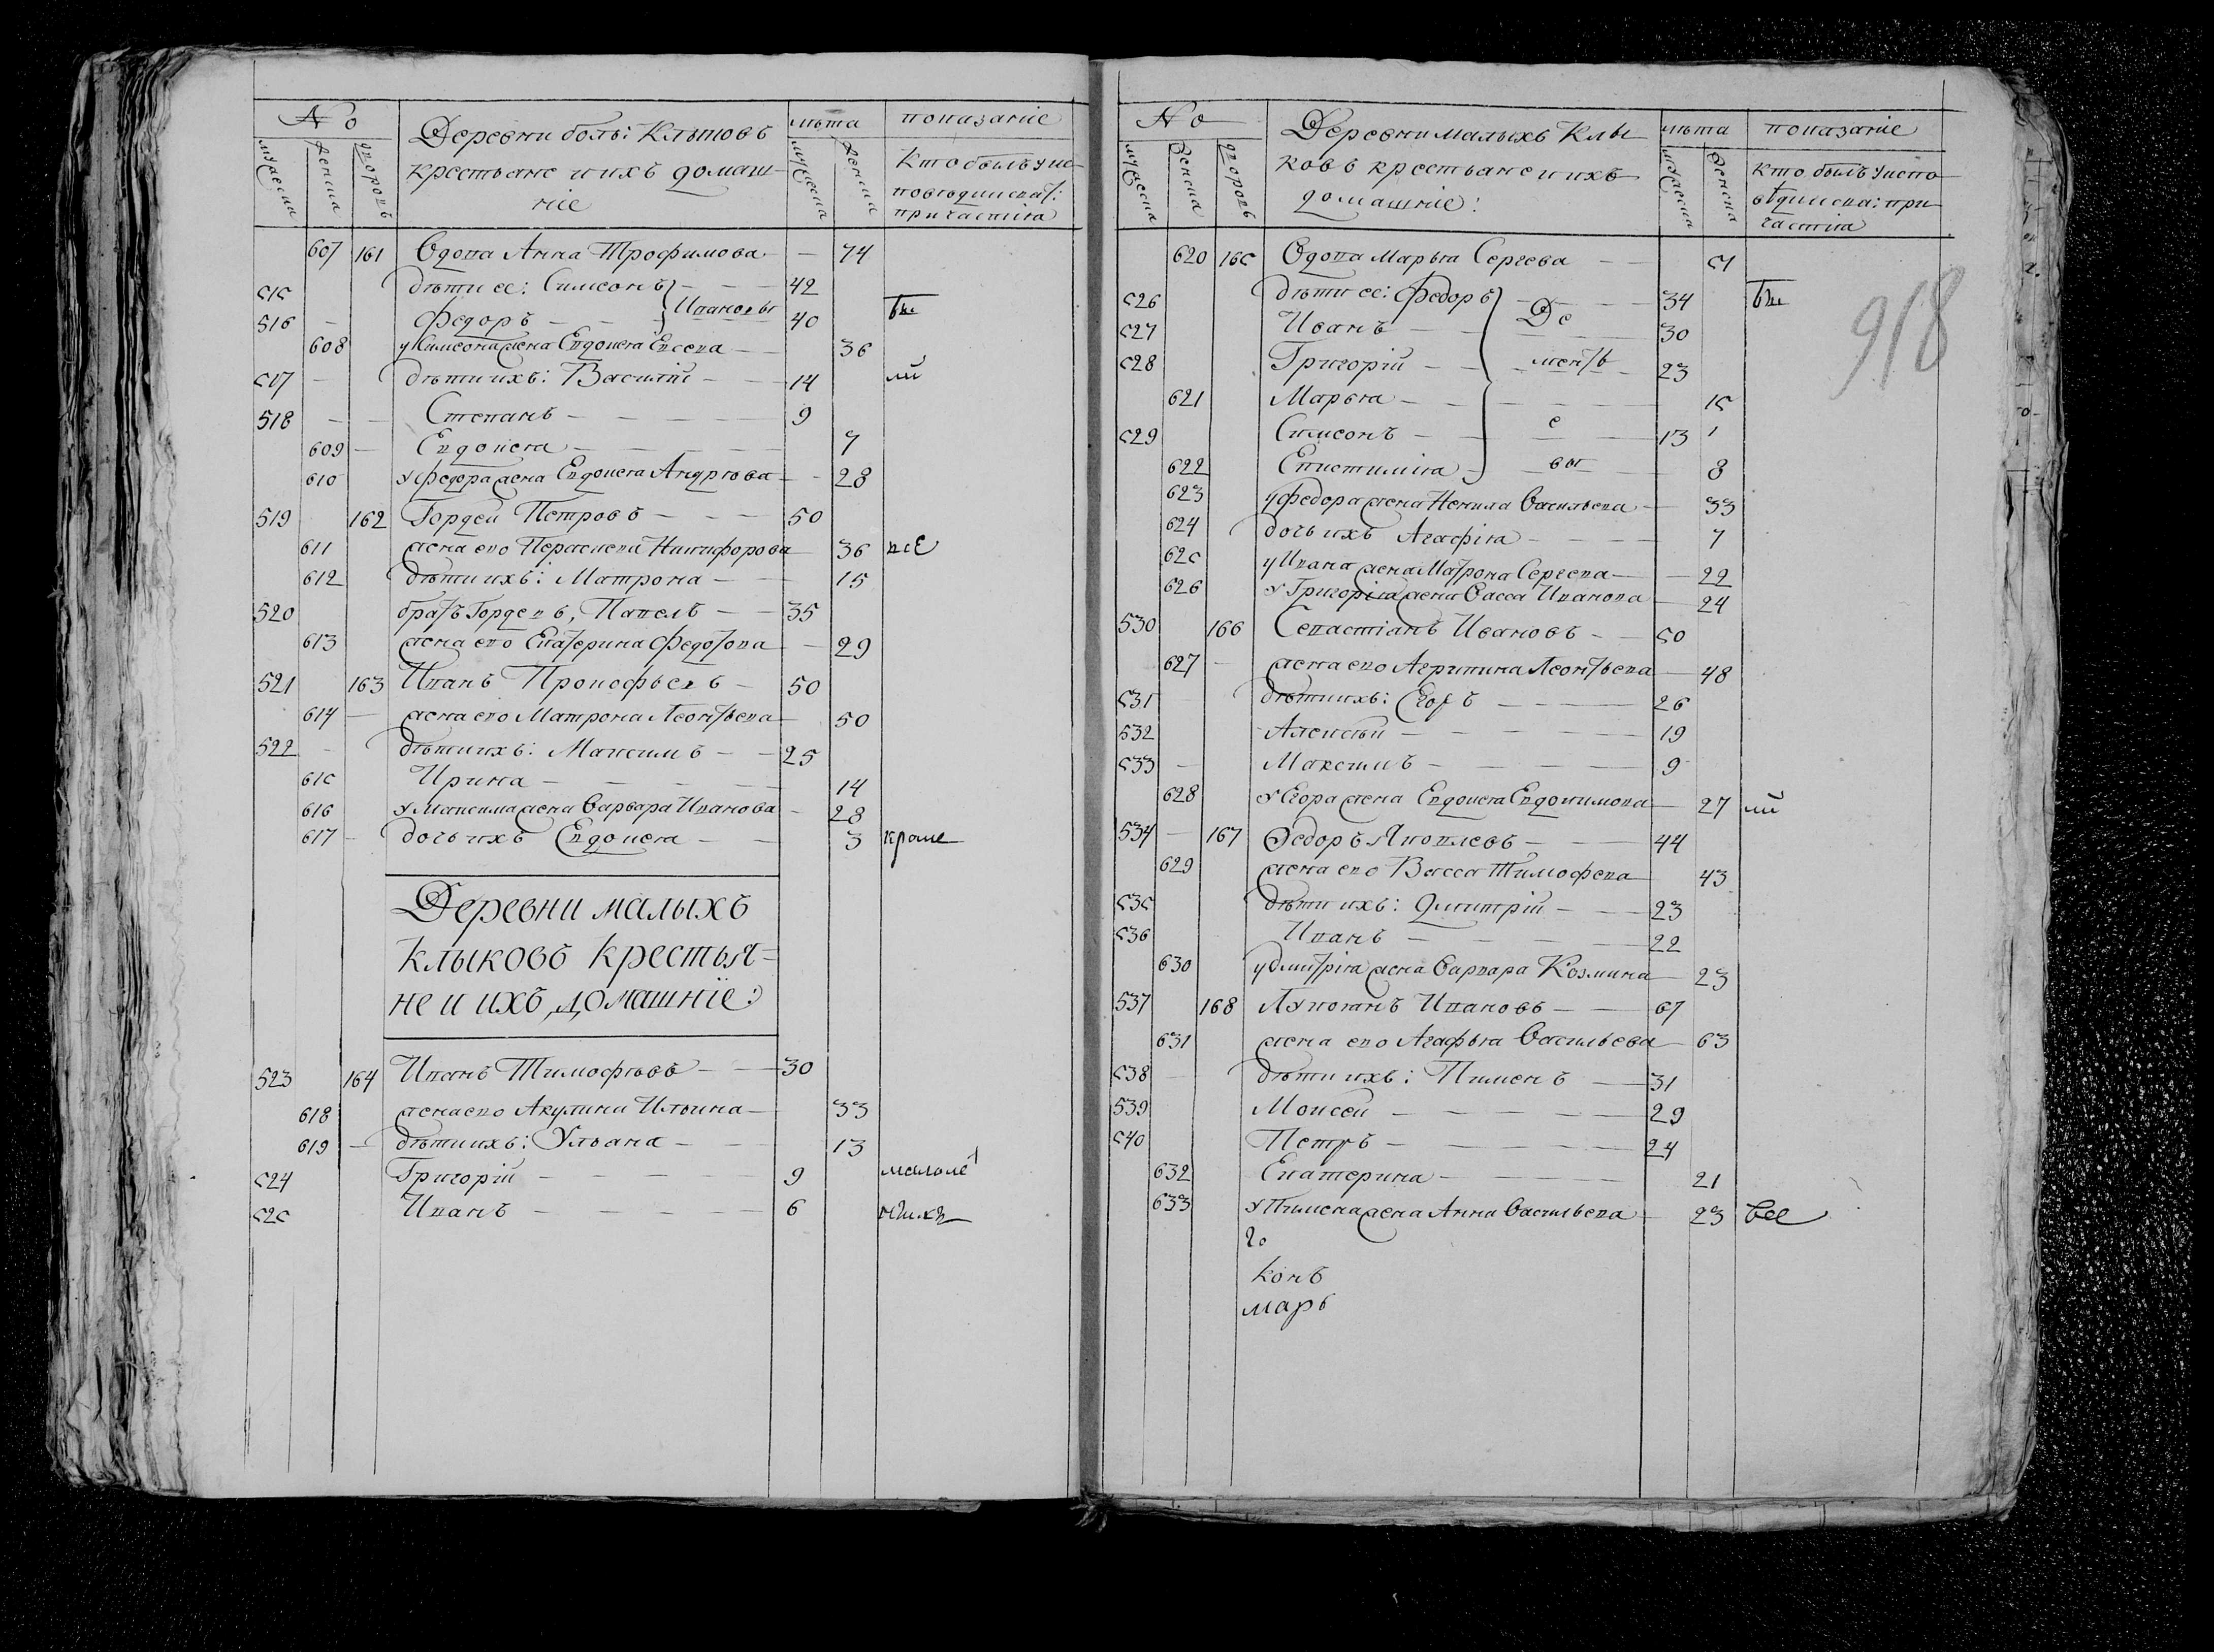 №
мужеска
женска
дворовъ
Деревни боль: Клыковъ
крестьяне и ихъ домаш-
ніе
лѣта
мужеска
женска
показаніе
кто былъ у ис-
повѣди и свят:
причастія
607 161 Вдова Анна Трофимова — 74
515 дѣти ее: Симеонъ 42
Ивановы
516 Федоръ 40 бы
608 у Симеона жена Евдокея Евсева 36
517 дѣти ихъ: Василій 14 ли
518 Степанъ 9
609 Евдокея 7
610 у Федора жена Евдокея Андрѣова 28
519 162 Гордей Петровъ 50
611 жена ево Парасковя Никифорова 36 все
612 дѣти ихъ: Матрона 15
520 братъ Гордеевъ, Павелъ 35
613 жена ево Екатерина Федотова 29
521 163 Иванъ Прокофьевъ 50
614 жена ево Матрона Леонтьева 50
522 дѣти ихъ: Максимъ 25
615 Ирина 14
616 у Максима жена Варвара Иванова 28
617 дочь ихъ Евдокея 3 кроме
Деревни малыхъ
Клыковъ крестья-
не и ихъ домашніе:
523 164 Иванъ Тимофѣовъ 30
618 жена ево Акулина Ильина 33
619 дѣти ихъ: Ульана 13
524 Григорій 9 малолѣт
525 Иванъ 6
№
мужеска
женска
дворовъ
Деревни малыхъ Клы
ковъ крестьяне и ихъ
домашніе:
лѣта
мужеска
женска
показаніе
кто былъ у испо
вѣди и свя: при
частія
918
620 165 Вдова Марья Сергева 51
526 дѣти ее: Федоръ 34 бы
527 Иванъ Де 30
528 Григорій ментъ 23
621 Марья 15
529 Симеонъ е 13
622 Епистимія вы 8
623 у Федора жена Ненила Васильева 33
624 дочь ихъ Агафія 7
625 у Ивана жена Матрона Сергева 29
626 у Григорія жена Васса Иванова 24
530 166 Севастіанъ Ивановъ 50
627 жена ево Агрипина Леонтьева 48
531 дѣти ихъ: Егоръ 26
532 Алексѣй 19
533 Максимъ 9
628 у Егора жена Евдокея Евдокимова 27 ли
534 167 Федоръ Яковлевъ 44
629 жена ево Васса Тимофева 43
535 дѣти ихъ: Димитрій 23
536 Иванъ 22
630 у Дмитрія жена Варвара Козмина 23
537 168 Лукоянъ Ивановъ 67
631 жена ево Агафья Васильева 63
538 дѣти ихъ: Пименъ 31
539 Моисей 29
540 Петръ 24
632 Екатерина 21
633 у Пимена жена Анна Васильева 23 все
го
конъ
марь